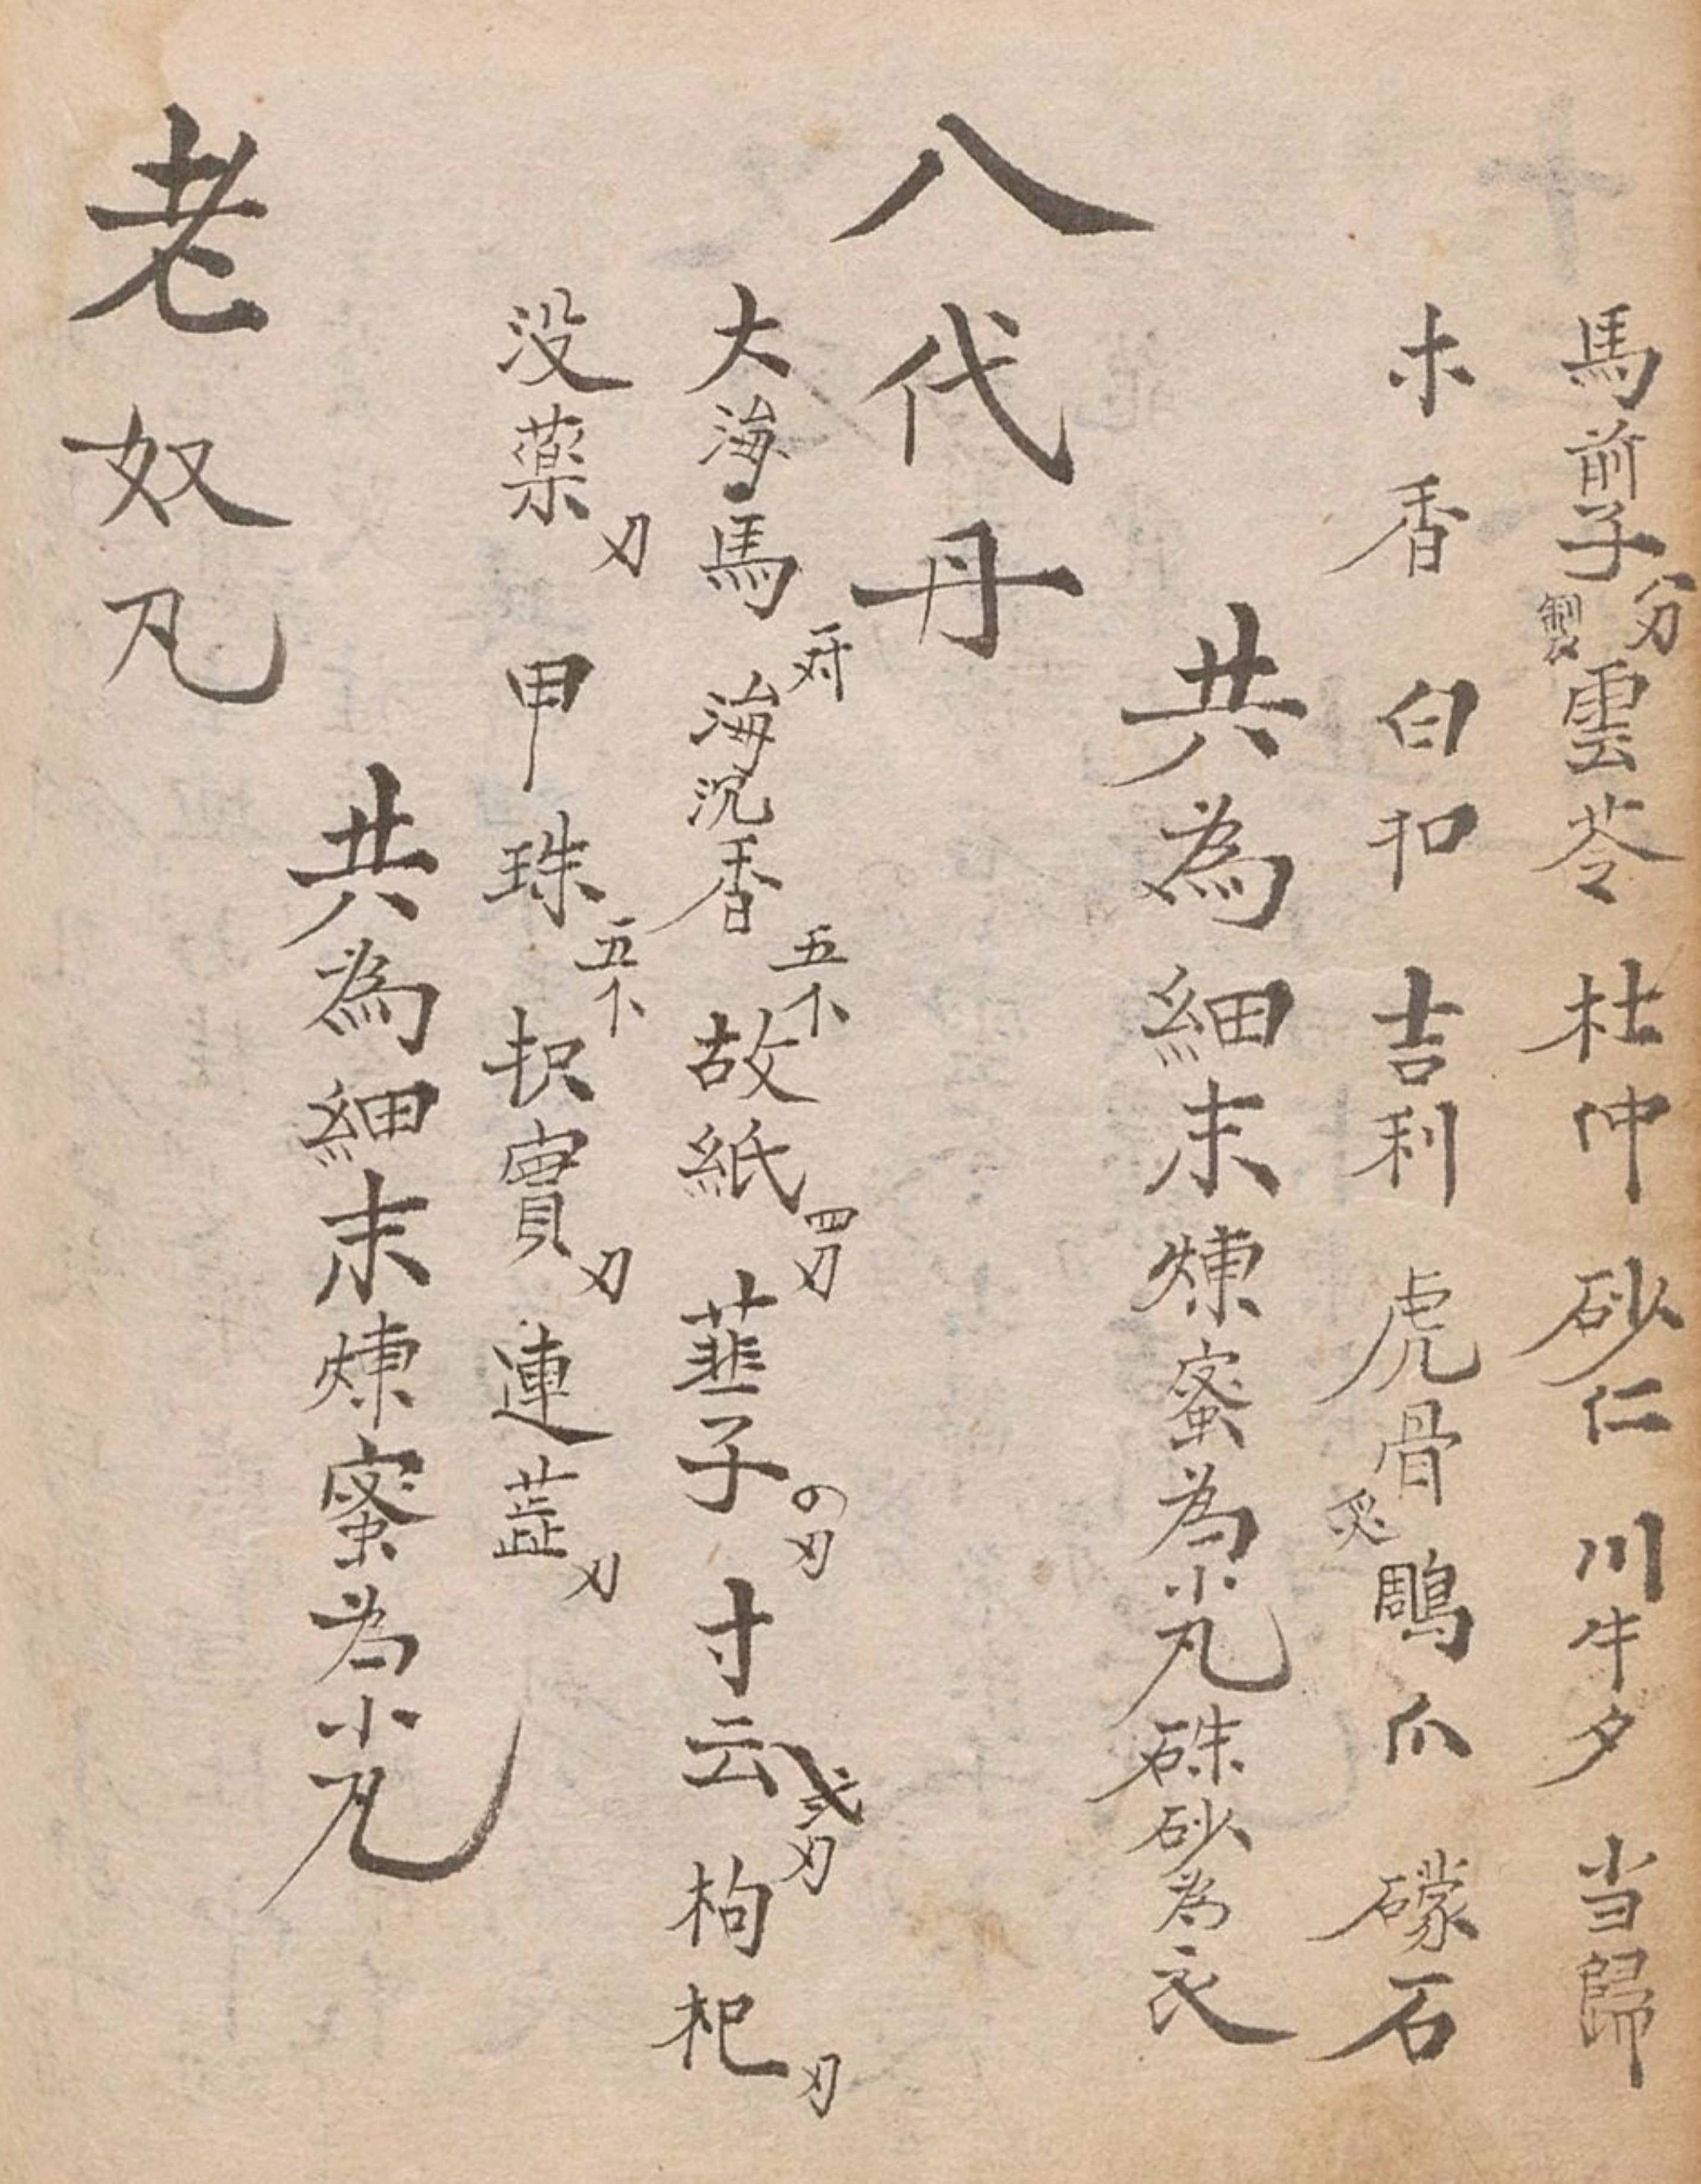 馬前子製分刃雲苓杜仲砂仁川牛夕当歸
木香白扣吉利虎骨炙鵰爪礞石
共為細末煉蜜為小凡硃砂為衣
八代丹
大海馬一对海沉香五个故紙四刃韮子の刃寸云弍刃枸杞刃
没薬刃甲珠五个枳實刃連蕋刃
共為細末煉蜜為小凡
老奴凡